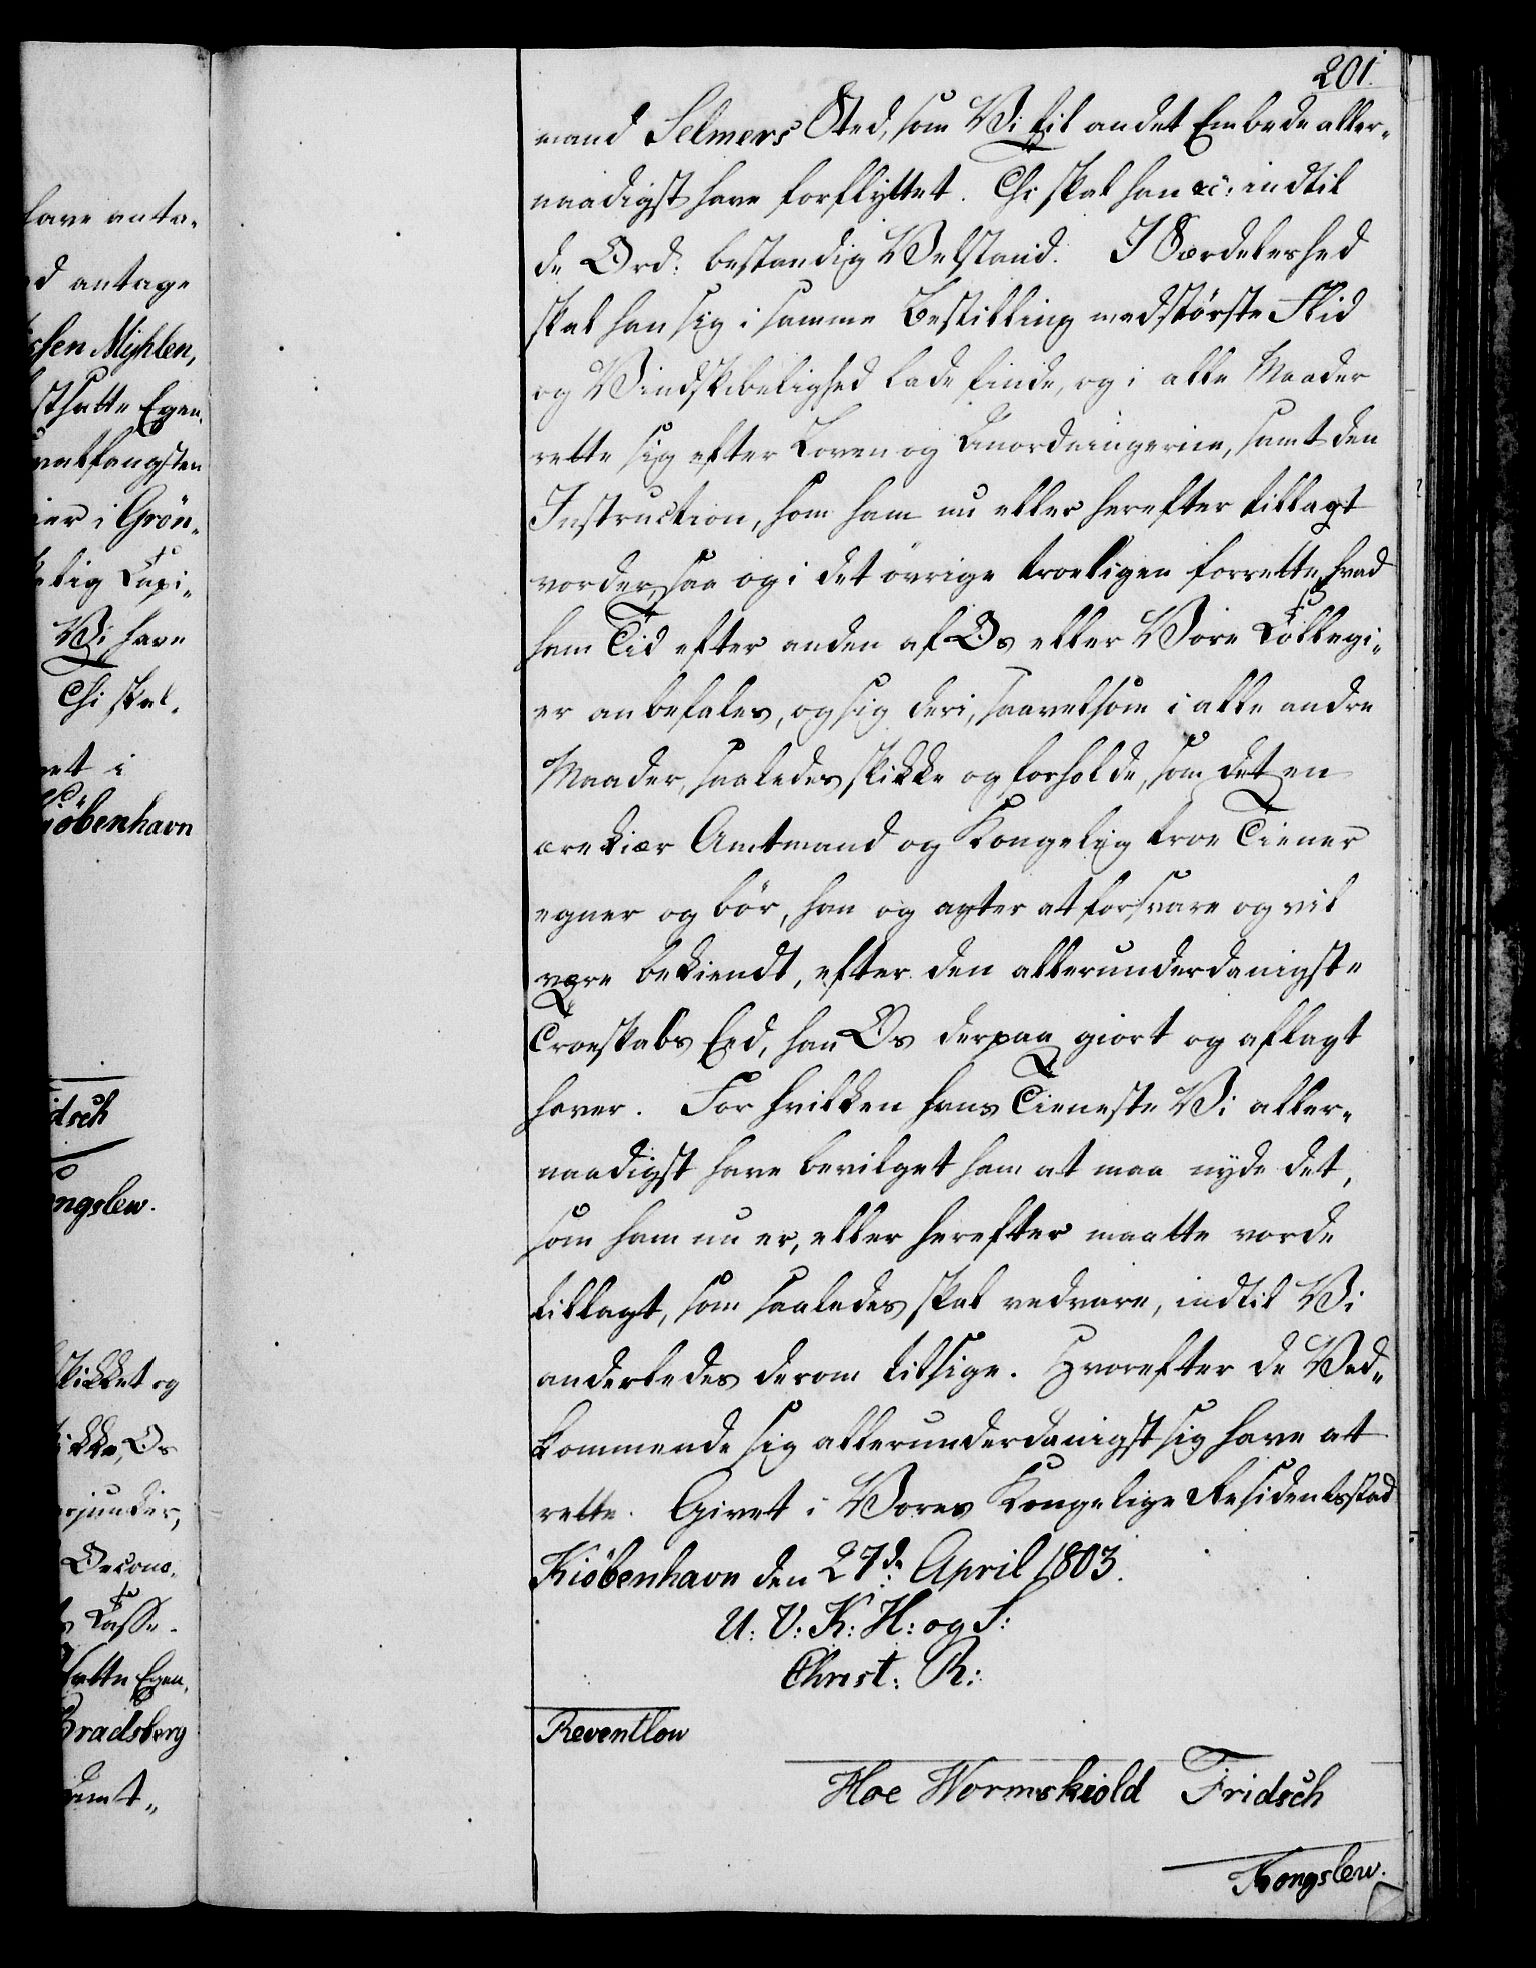 201.
mand Selmers Sted, som Vi til andet Embede aller-
naadigst have forflyttet. Thi skal han &c: indtil
de Ord: bestandig Velstand. I Særdeleshed
skal han sig i samme Bestilling med største Flid
og Vindskibelighed lade finde, og i alle Maader
rette sig efter Loven og Anordningerne, samt den
Instruction, som ham nu eller herefter tillagt
vorder, saa og i det övrige troeligen forrette, hvad
ham Tid efter anden af Os eller Vore Collegi-
er anbefales, og sig deri, saavelsom i alle andre
Maader, saaledes skikke og forholde, som det en
ærekiær Amtmand og Kongelig troe Tiener
egner og bör, han og agter at forsvare og vil
være bekiendt, efter den allerunderdanigste
Troeskabs Eed, han Os derpaa giort og aflagt
haver. For hvilken hans Tieneste Vi aller-
naadigst have bevilget ham at maa nyde det,
som ham nu er, eller herefter maatte vorde
tillagt, som saaledes skal vedvare, indtil Vi
anderledes derom tilsige. Hvorefter de Ved-
kommende sig allerunderdanigst sig have at
rette. Givet i Vores Kongelige Residentsstad
Kiöbenhavn den 27de April 1803.
U: V: K: H: og S:
Christ: R:
Reventlow
Hoe Wormskiold Fridsch
Kongslew.
have anta-
antage
Myhlen,
Egen-
i Grön-
Vi have
Thi skal.
i
Kiöbenhavn
Fridsch
Kongslew.
skikket og
Os
Oecono-
Casse-
Egen-
Bradsberg
Amt-